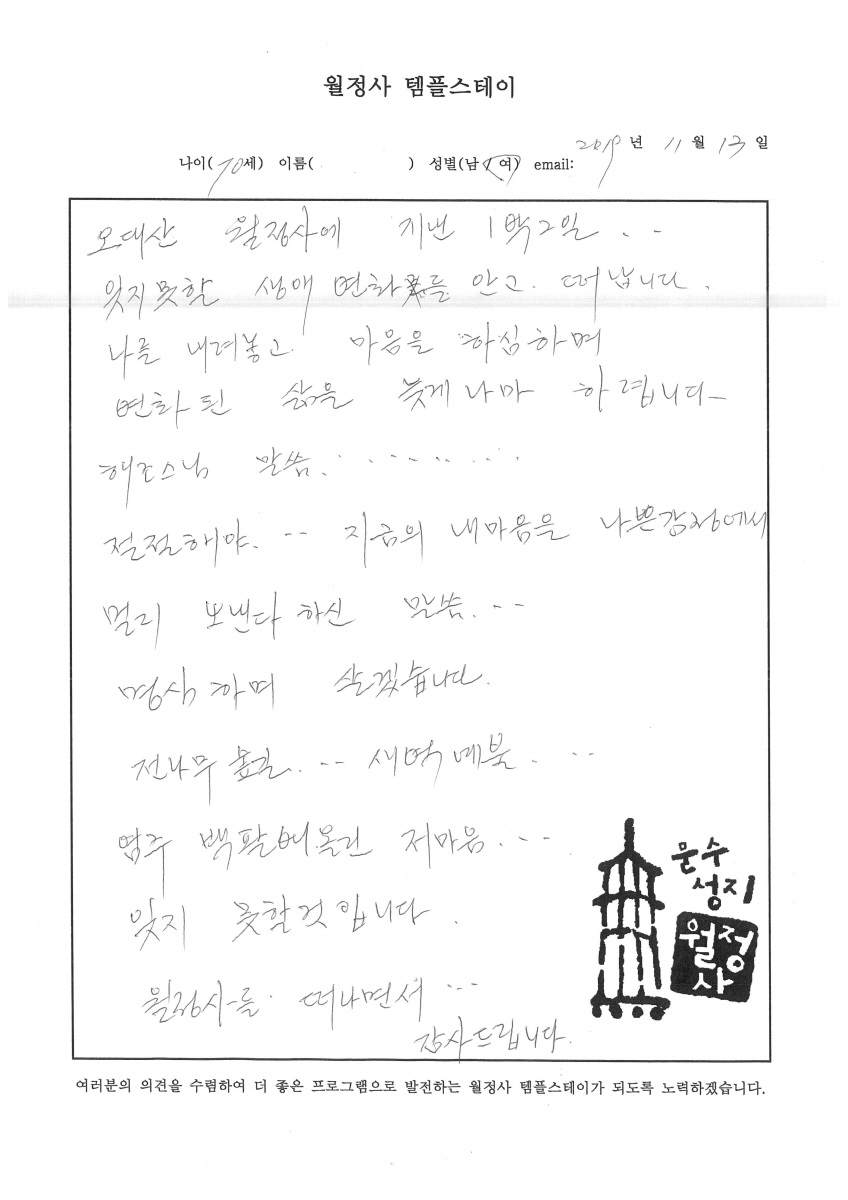 월정사 템플스테이
2019 년 11 월 13 일
나이( 70 세) 이름( ) 성별(남 / 여) email:
오대산 월정사에 지낸 1박2일 . . .
잊지못할 생애 변화를 안고. 떠납니다.
나를 내려놓고. 마음을 하심하며
변화된 삶을 늦게나마 하렵니다-
해조스님 말씀. . . . . . . . . .
절절해야. -- 지금의 내마음을 나쁜감정에서
멀리 보낸다 하신 말씀. --
명심하며 살겠습니다.
전나무 숲길. -- 새벽예불. --
염주 백팔배올린 저마음. --
잊지 못할것입니다.
월정사를 떠나면서 ...
감사드립니다.
문수
성지
월정
사
여러분의 의견을 수렴하여 더 좋은 프로그램으로 발전하는 월정사 템플스테이가 되도록 노력하겠습니다.